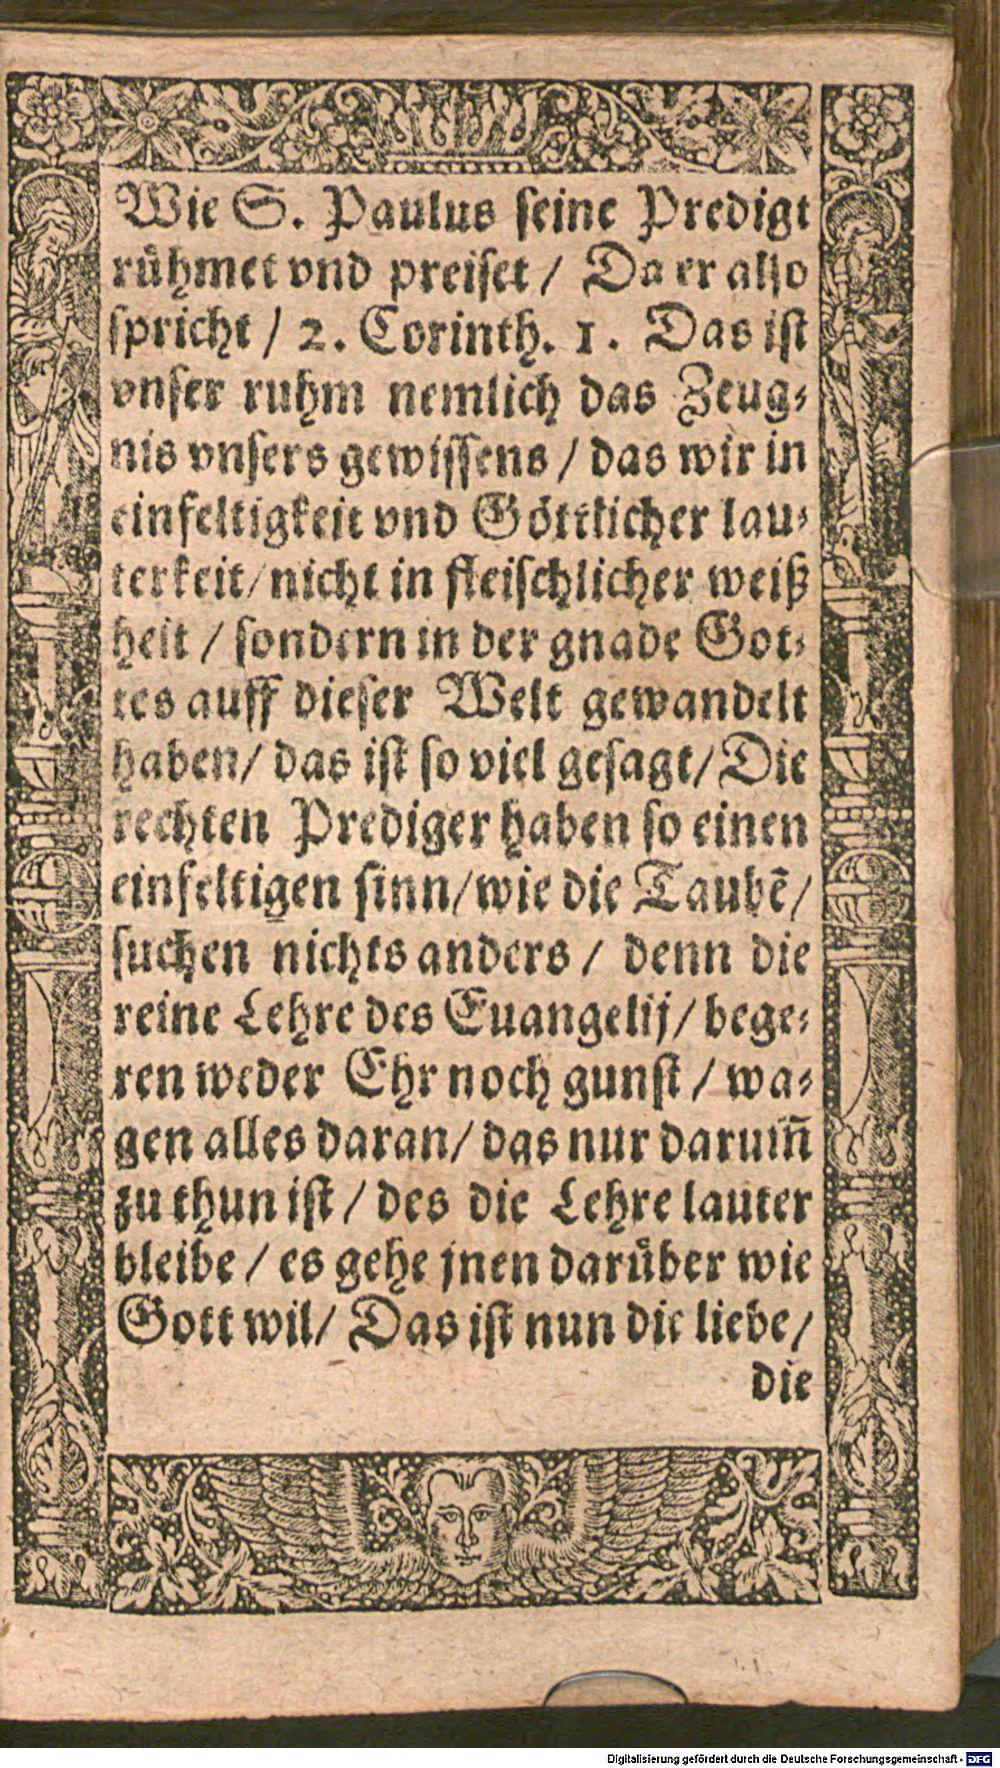 Wie S. Paulus ſeine Predigt
ruͤhmet vnd preiſet / Da er alſo
ſpricht / 2. Corinth. 1. Das iſt
vnſer ruhm nemlich das Zeug⸗
nis vnſers gewiſſens / das wir in
einfeltigkeit vnd Goͤttlicher lau⸗
terkeit / nicht in fleiſchlicher weiß
heit / ſondern in der gnade Got⸗
tes auff dieſer Welt gewandelt
haben / das iſt ſo viel geſagt / Die
rechten Prediger haben ſo einen
einfeltigen ſinn / wie die Taubẽ /
ſuchen nichts anders / denn die
reine Lehre des Euangelij / bege⸗
ren weder Ehr noch gunſt / wa⸗
gen alles daran / das nur darum̃
zu thun iſt / des die Lehre lauter
bleibe / es gehe jnen daruͤber wie
Gott wil / Das iſt nun die liebe /
die
Digitalisierung gefördert durch die Deutsche Forschungsgemeinschaft - DFG